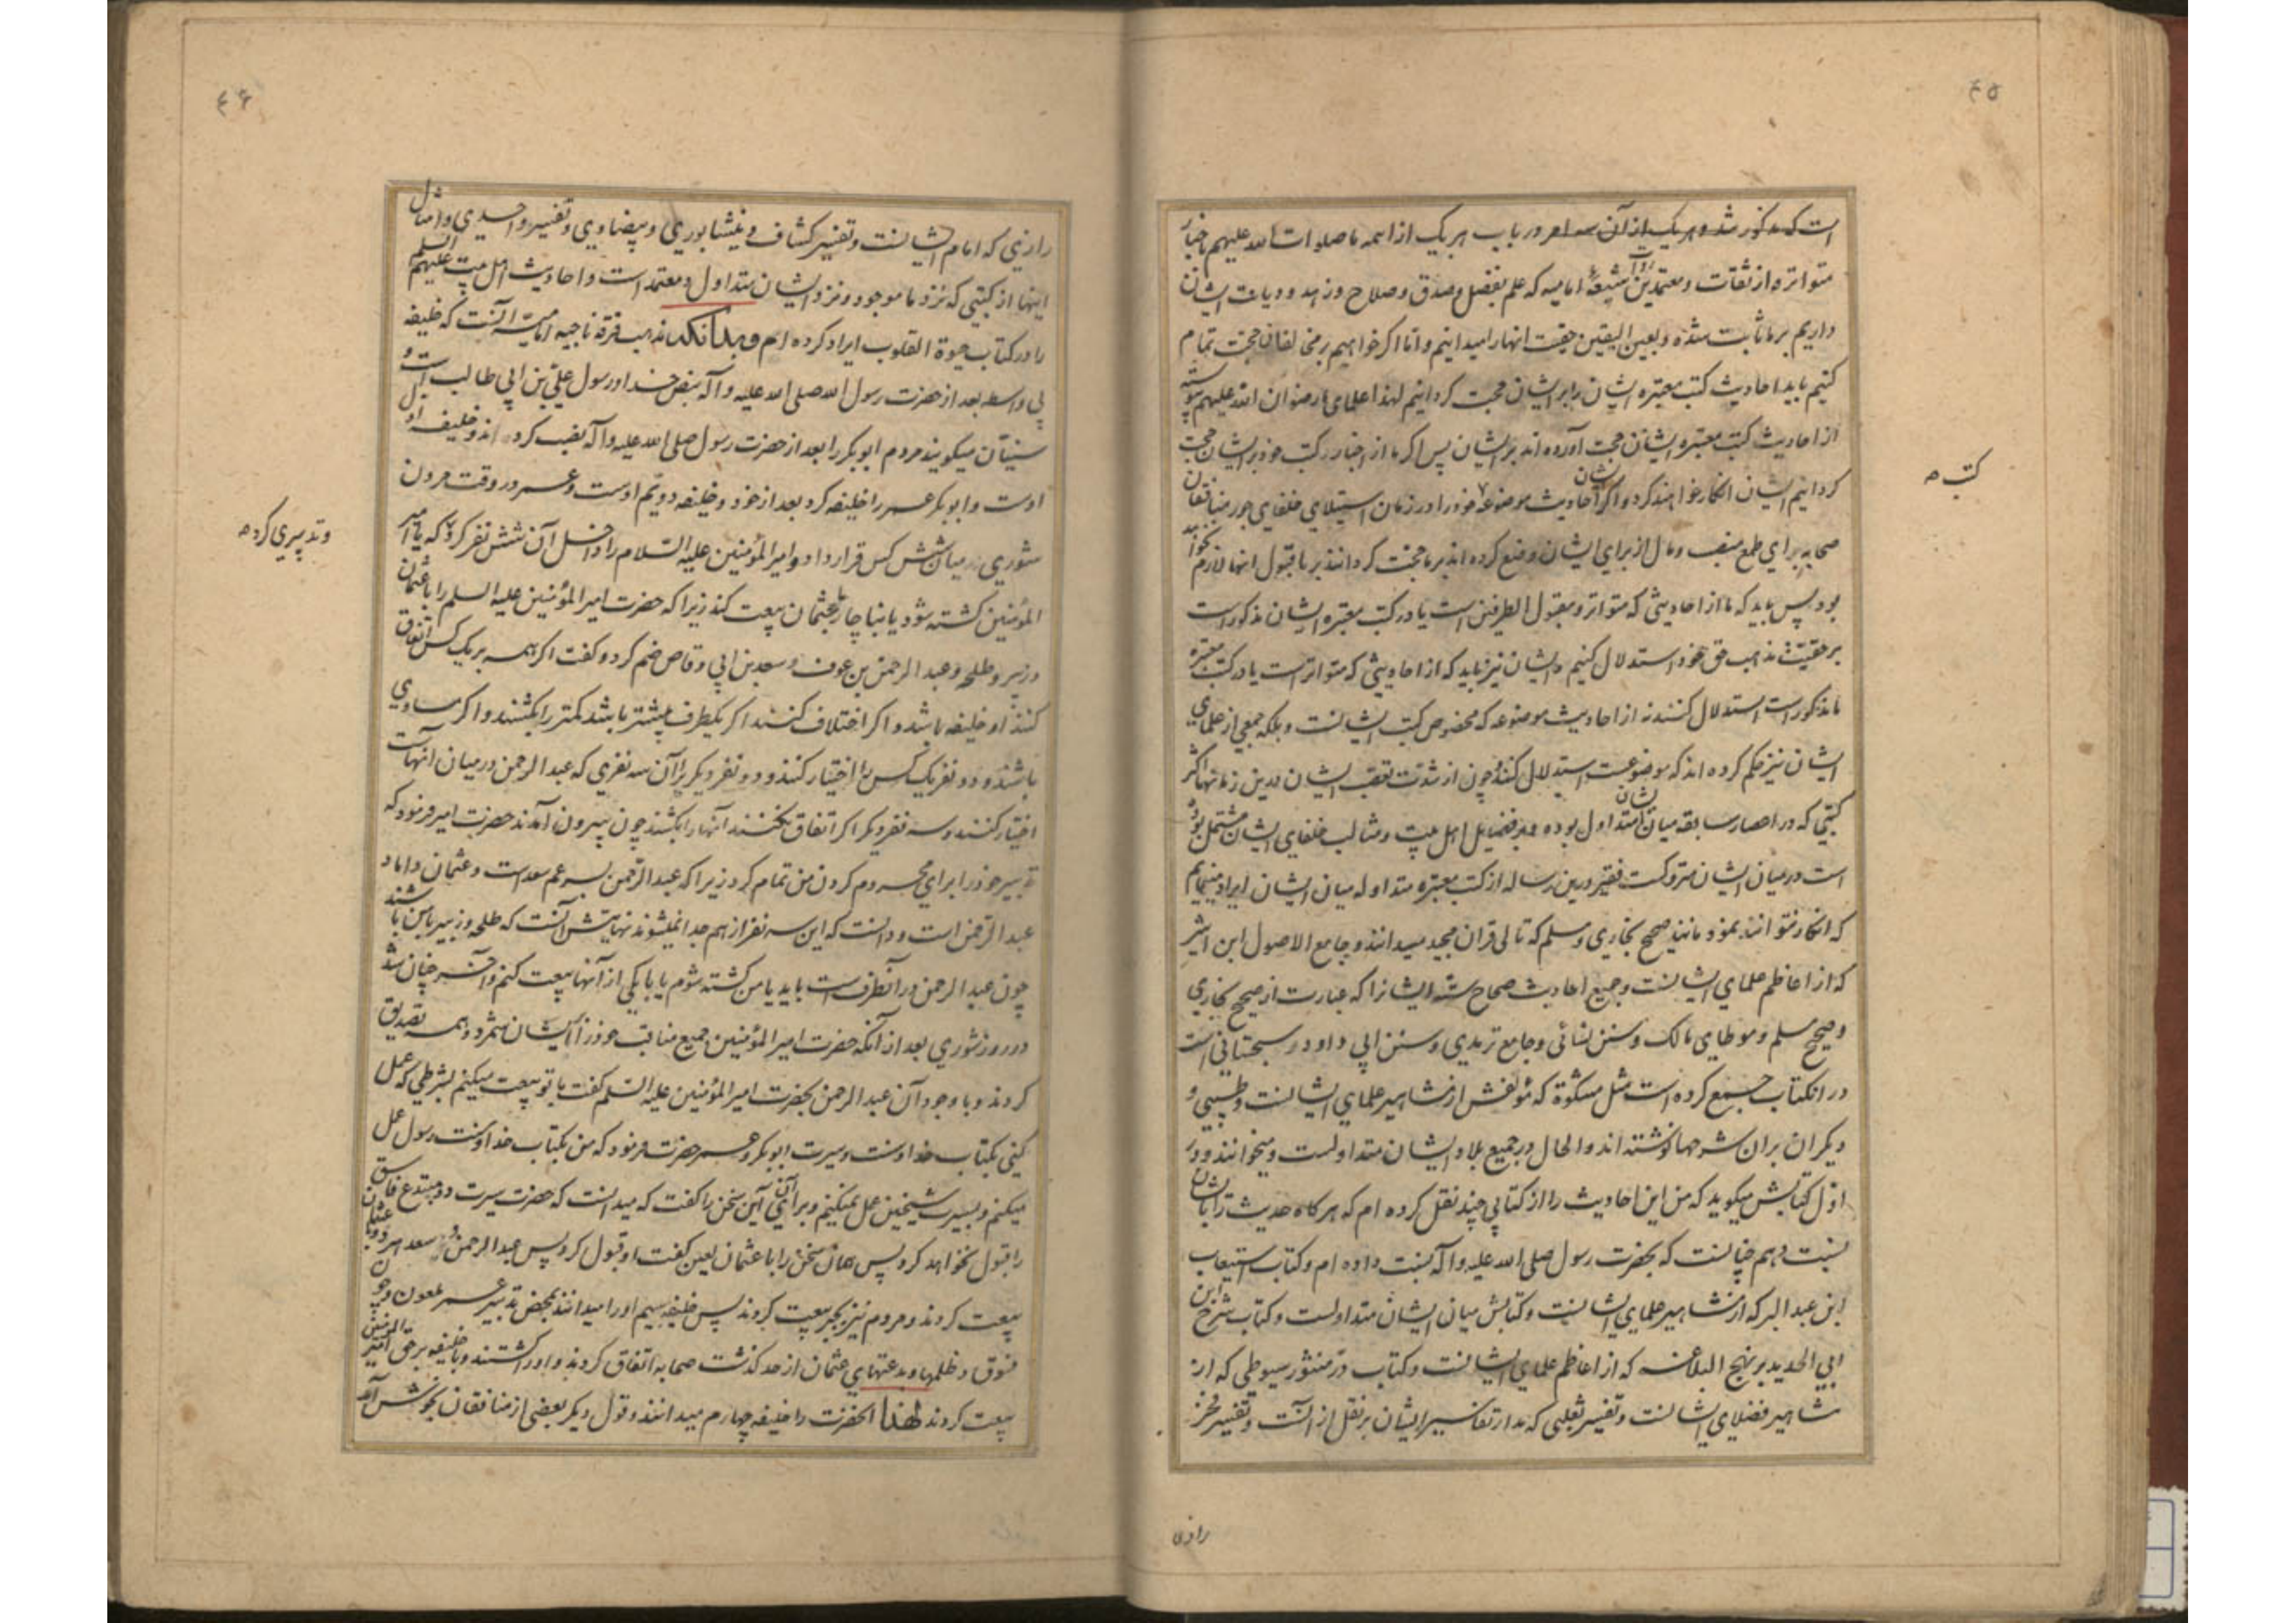 ۴۵
است که مذکور شد و هر یک از آن سه امر در باب هر یک از ائمه ما صلوات الله علیهم باخبار
متواتره از ثقات و معتمدین روات شیعهٔ امامیه که علم بفضل و صدق و صلاح و زهد و دیانت ایشان
داریم بر ما ثابت شده و بعین الیقین حقیت انها را میدانیم و اما اکر خواهیم بر مخالفان حجت تمام
کنیم باید احادیث کتب معتبره ایشان را بر ایشان حجت کردانیم لهذا علمای ما رضوان الله علیهم پیوسته
از احادیث کتب معتبره ایشان حجت آورده اند بر ایشان پس اکر ما از اخبار کتب خود بر ایشان حجت
کتب ص
کردانیم ایشان انکار خواهند کرد و اکر ایشان احادیث موضوعهٔ خود را در زمان استیلای خلفای جور منافقان
صحابه برای طمع منصب و مال از برای ایشان وضع کرده اند بر ما حجت کردانند بر ما قبول انها لازم نخواهد
بود پس باید که ما از احادیثی که متواتر و مقبول الطرفین است یا در کتب معتبره ایشان مذکور است
بر حقیت مذهب حق خود استدلال کنیم و ایشان نیز باید که از احادیثی که متواتر است یا در کتب معتبره
ما مذکور است استدلال کنند نه از احادیث موضوعه که مخصوص کتب ایشانست و بلکه جمعی از علمای
ایشان نیز حکم کرده اند که موضوعست استدلال کنند و چون از شدت تعصب ایشان درین زمانها اکثر
کتبی که در اعصار سابقه میان ایشان متداول بوده و بر فضایل اهل بیت و مثالب خلفای ایشان مشتمل بوده
است در میان ایشان متروکست فقیر درین رساله از کتب معتبره متداوله میان ایشان ایراد مینمایم
که انکار نتوانند نمود مانند صحیح بخاری و مسلم که تالی قران مجید میدانند و جامع الاصول ابن اثیر
که از اعاظم علمای ایشانست و جمیع احادیث صحاح ستهٔ ایشانرا که عبارت از صحیح بخاری
و صحیح مسلم و موطای مالک و سنن نسائی و جامع ترمدی و سنن ابی داود سجستانی است
در انکتاب جمع کرده است مثل مشکوة که مؤلفش از مشاهیر علمای ایشانست و طیبی و
دیکران بران شرحها نوشته اند و الحال در جمیع بلاد ایشان متداولست و میخوانند و در
اوّل کتابش میکوید که من این احادیث را از کتابی چند نقل کرده ام که هر کاه حدیث را بایشان
نسبت دهم چنانست که بحضرت رسول صلی الله علیه و آله نسبت داده ام و کتاب استیعاب
ابن عبد البر که از مشاهیر علمای ایشانست و کتابش میان ایشان متداولست و کتاب شرح ابن
ابی الحدید بر نهج البلاغه که از اعاظم علمای ایشانست و کتاب در منثور سیوطی که از
مشاهیر فضلای ایشانست و تفسیر ثعلبی که مدار تفاسیر ایشان بر نقل از آنست و تفسیر فخر
رازی
۴۶
رازی که امام ایشانست و تفسیر کشاف و نیشابوری و بیضاوی و تفسیر واحدی و امثال
اینها از کتبی که نزد ما موجود و نزد ایشان متداول و معتمد است و احادیث اهل بیت علیهم السلم
را در کتاب حیوة القلوب ایراد کرده ام و بدانکه مذهب فرقهٔ ناجیه امامیّه آنست که خلیفه
بی واسطه بعد از حضرت رسول الله صلی الله علیه و آله بنص خدا و رسول علیّ بن ابی طالب است و
سنیّان میکویند مردم ابو بکر را بعد از حضرت رسول صلی الله علیه و آله نصب کرده اند و خلیفه اول
اوست و ابو بکر عمر را خلیفه کرد بعد از خود و خلیفه دویّم اوست و عمر در وقت مردن
شوری در میان شش کس قرار داد و امیر المؤمنین علیه السّلام را داخل آن شش نفر کرد که یا امیر
و تدبیری کرد ص
المؤمنین کشته شود یا بناچار با عثمان بیعت کند زیرا که حضرت امیر المؤمنین علیه السلم را با عثمان
و زبیر و طلحه و عبد الرحمن بن عوف و سعد بن ابی وقاص ضم کرد و کفت اکر همه بر یک کس اتفاق
کنند او خلیفه باشد و اکر اختلاف کنند اکر یکطرف بیشتر باشد کمتر را بکشند و اکر مساوی
باشند و دو نفر یک کس را اختیار کنند و دو نفر دیکر را آن سه نفری که عبد الرحمن در میان انهاست
اختیار کنند و سه نفر دیکر اکر اتفاق نکنند آنها را بکشند چون بیرون آمدند حضرت امیر فرمود که
تدبیر خود را برای محروم کردن من تمام کرد زیرا که عبد الرّحمن پسر عم سعد است و عثمان داماد
عبد الرّحمن است و دانست که این سه نفر از هم جدا نمیشوند نهایتش آنست که طلحه و زبیر با من باشند
چون عبد الرحمن در آنطرف است باید یا من کشته شوم یا با یکی از آنها بیعت کنم و آخر چنان شد
در روز شوری بعد از آنکه حضرت امیر المؤمنین جمیع مناقب خود را بر ایشان شمرد و همه تصدیق
کردند و با وجود آن عبد الرحمن بحضرت امیر المؤمنین علیه السّلم کفت با تو بیعت میکنیم بشرطی که عمل
کنی بکتاب خدا و سنت و سیرت ابو بکر و عمر حضرت فرمود که من بکتاب خدا و سنت رسول عمل
میکنم و بسیرت شیخین عمل نمیکنم و برای آن این سخن را کفت که میدانست که حضرت سیرت دو مبتدع فاسق
را قبول نخواهد کرد پس همان سخن را با عثمان لعین کفت او قبول کرد پس عبد الرحمن و سعد هر دو با عثمان
بیعت کردند و مردم نیز بجبر بیعت کردند پس خلیفه سیم او را میدانند بمحض تدبیر عمر ملعون و چون
فسوق و ظلمها و بدعتهای عثمان از حد کذشت صحابه اتفاق کردند و او را کشتند و با خلیفه بر حق امیر المؤمنین
بیعت کردند لهذا انحضرت را خلیفه چهارم میدانند و قول دیکر بعضی از منافقان بخوش آمد